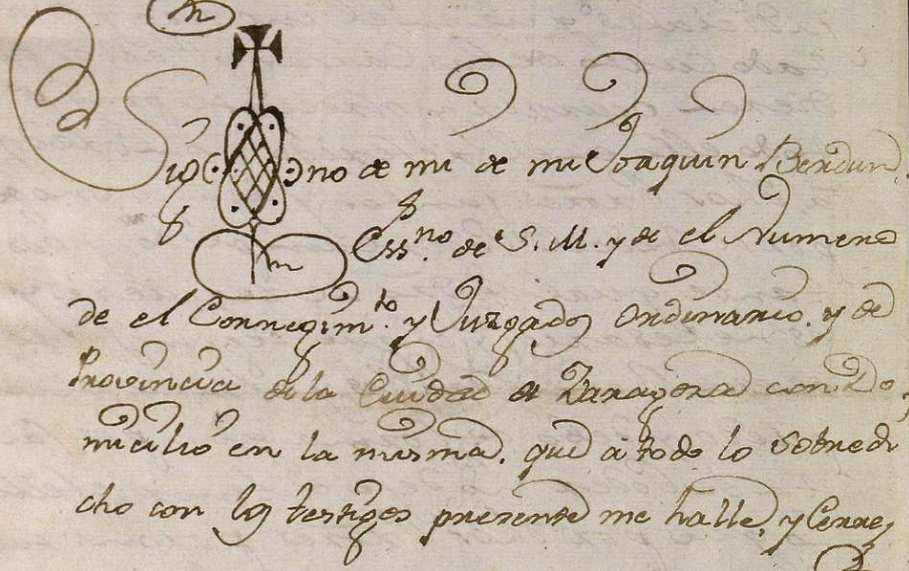 Sig no de mi de mi Joaquin Berdun,
Ess.no de S. M. y de el Numero
de el Corregim.to y Juzgados Ordinario. y de
Provincia de la Ciudad de Zaragoza con Do,
micilio en la misma. que a todo lo sobredi
cho con los testigos presente me halle, y Cerre,